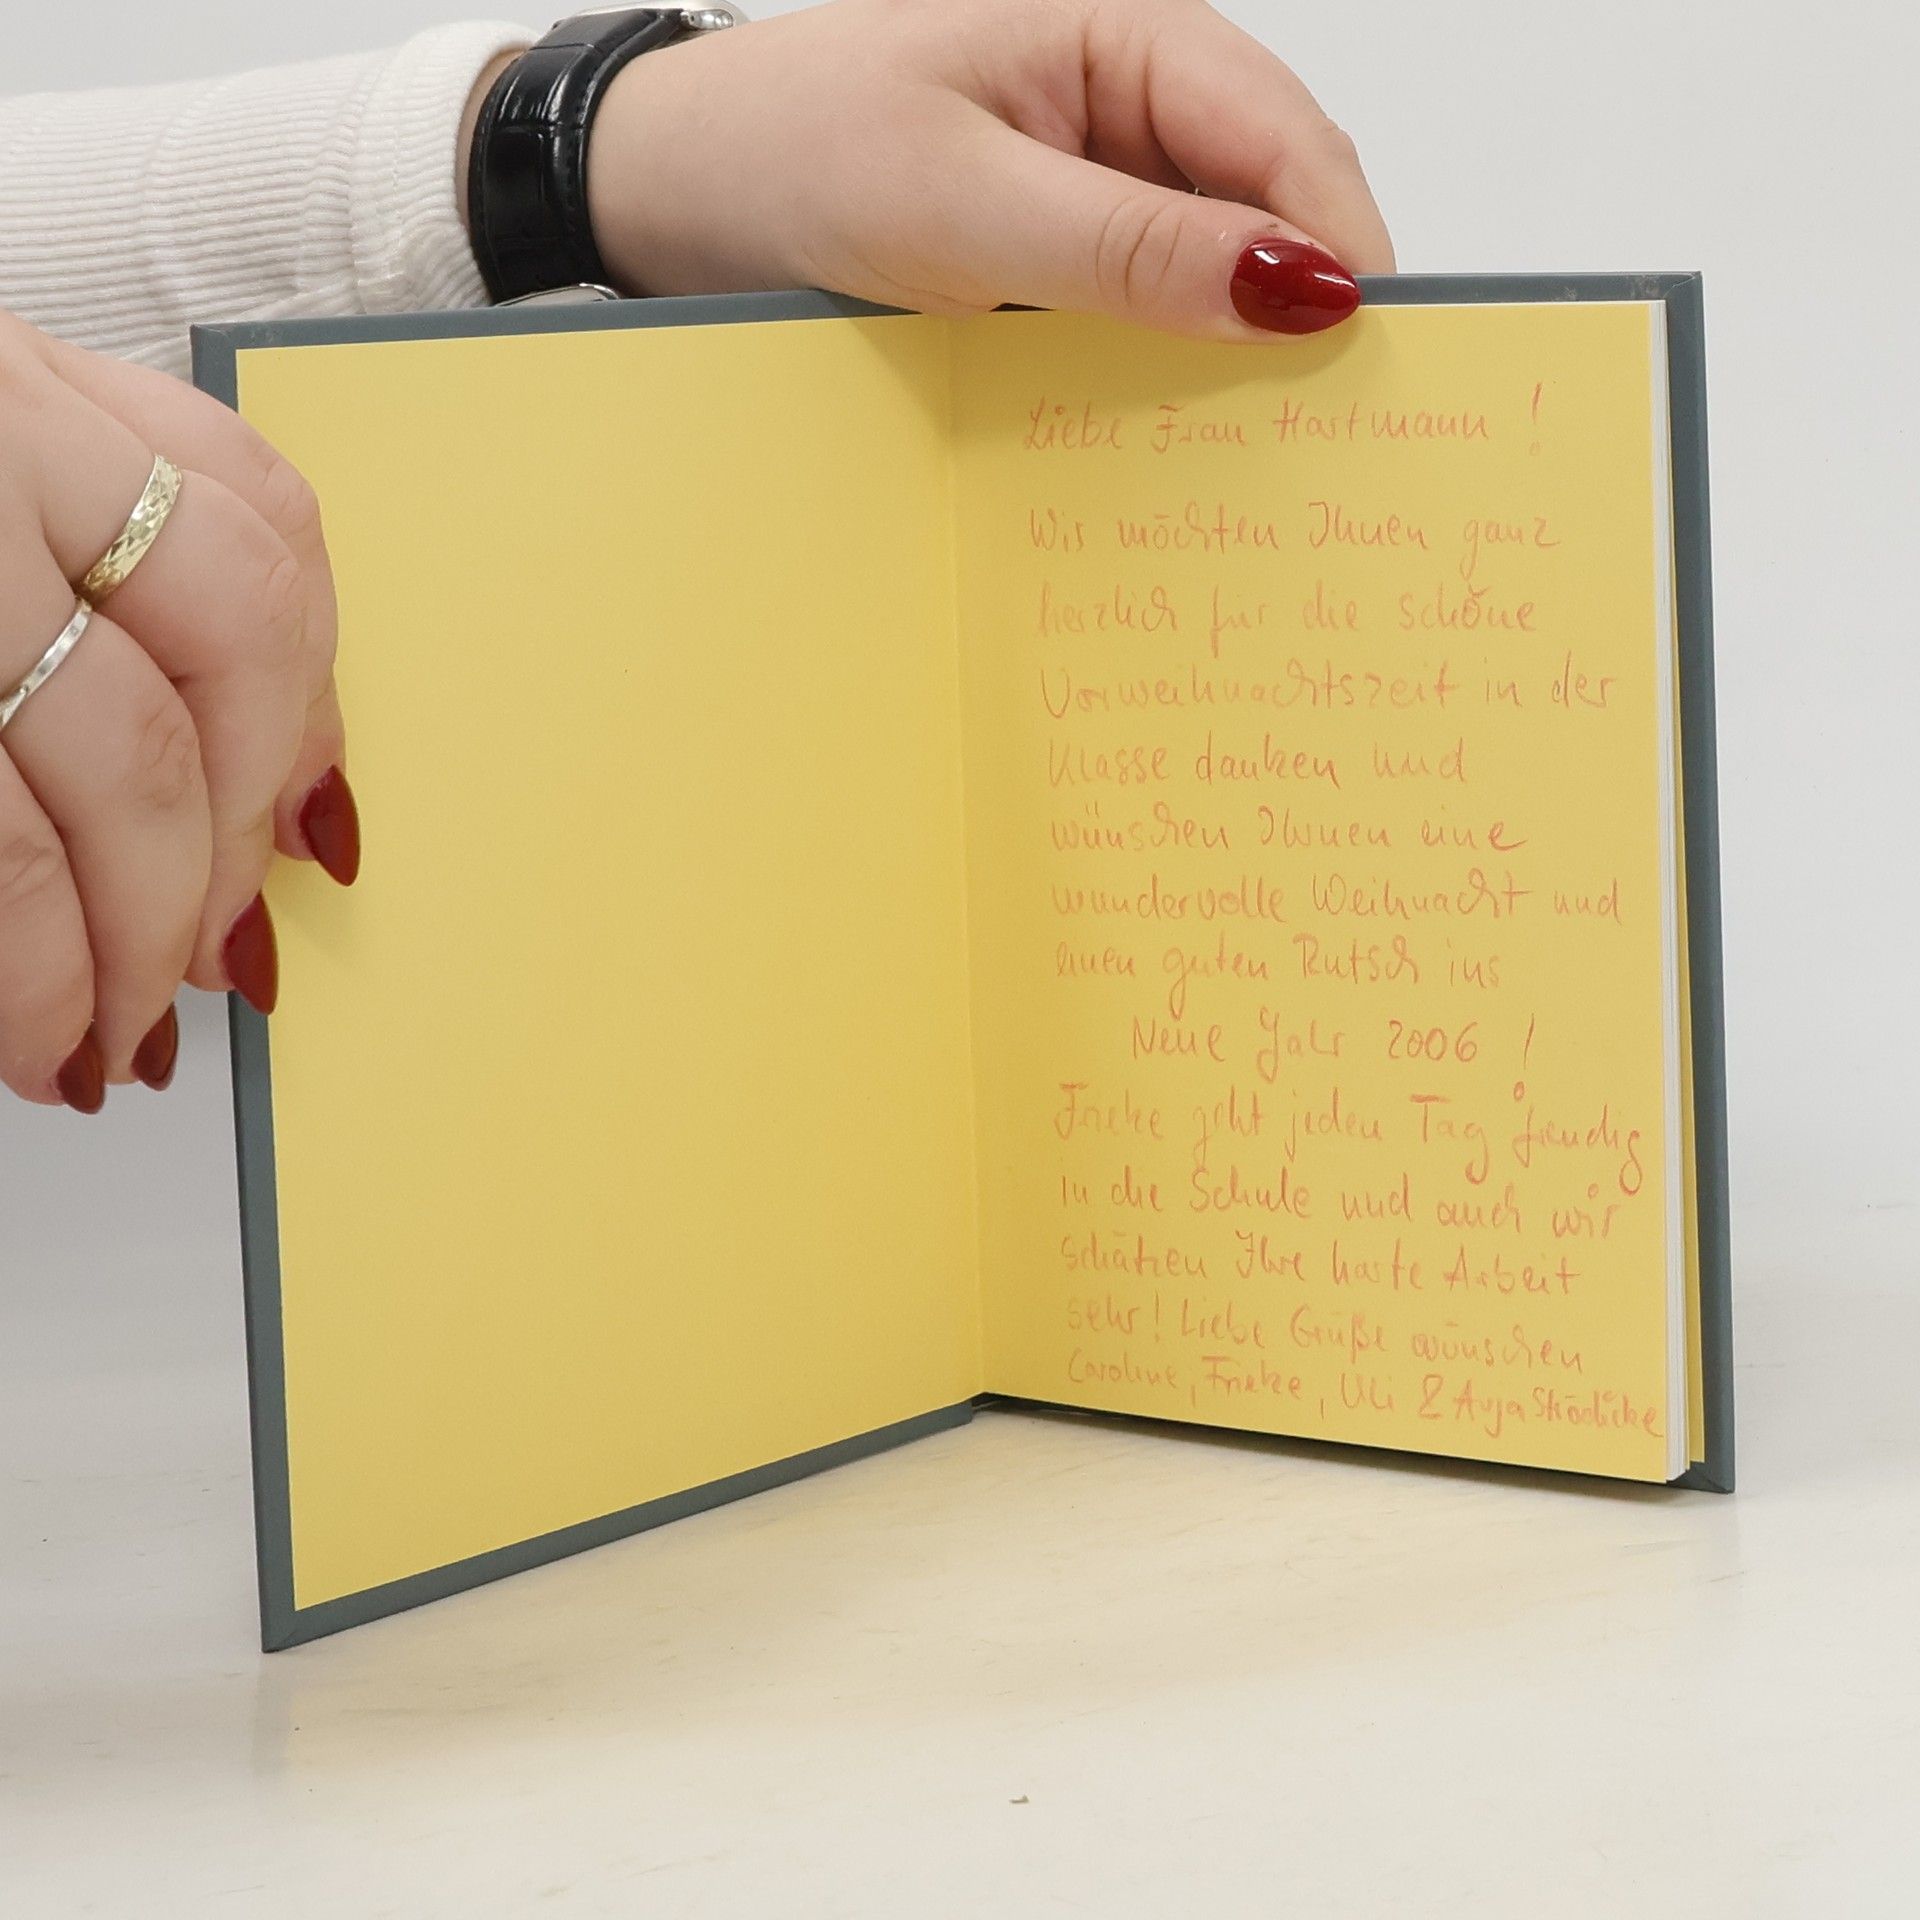 Liebe Frau Hartmann !
Wir möchten Ihnen ganz
herzlich für die schöne
Vorweihnachtszeit in der
Klasse danken und
wünschen Ihnen eine
wundervolle Weihnacht und
einen guten Rutsch ins
Neue Jahr 2006 !
Frieke geht jeden Tag freudig
in die Schule und auch wir
schätzen Ihre harte Arbeit
sehr! Liebe Grüße wünschen
Caroline, Frieke, Uli &